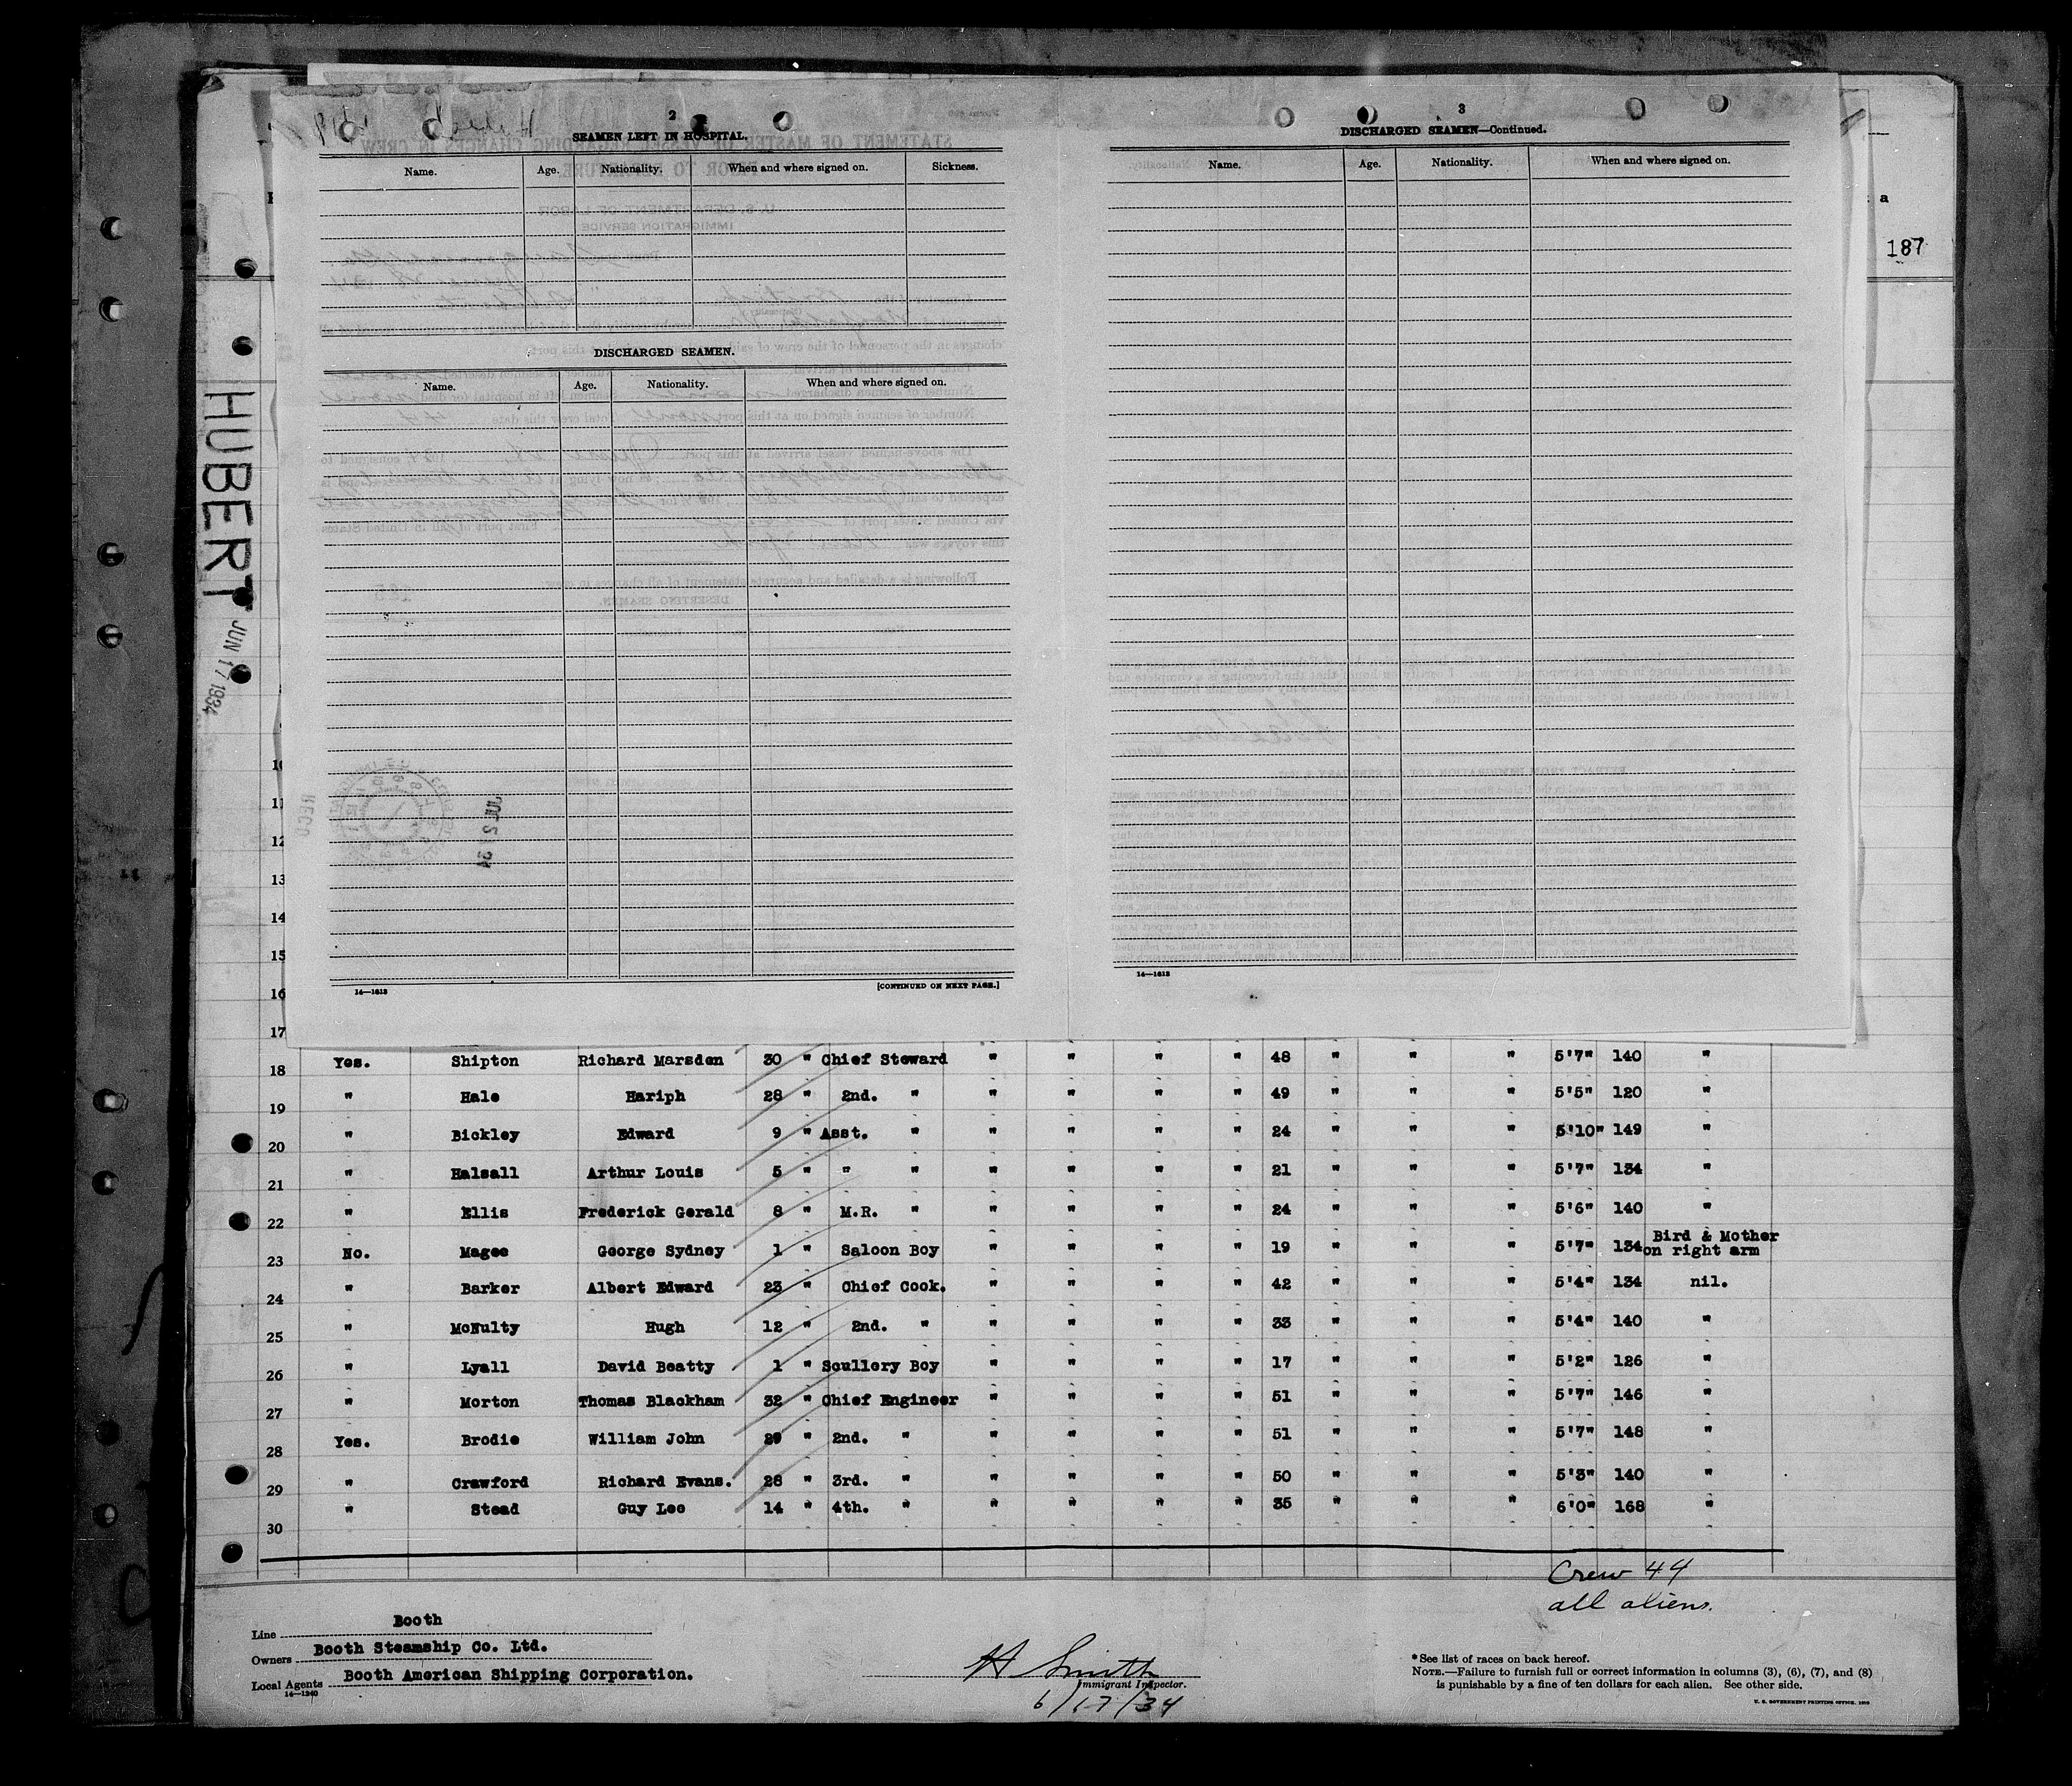 2
SEAMEN LEFT IN HOSPITAL.
Name. Age. Nationality. When and where signed on. Sickness.
DISCHARGED SEAMEN.
Name. Age. Nationality. When and where signed on.
14—1613
[CONTINUED ON NEXT PAGE.]
3
DISCHARGED SEAMEN—Continued.
Name. Age. Nationality. When and where signed on.
14—1613
a
187
HUBERT
JUN 17 1934
10
11
12
13
14
15
16
17
18 Yes. Shipton Richard Marsden 30 " Chief Steward " " " " 48 " " " 5'7" 140 "
19 " Hale Hariph 28 " 2nd. " " " " " 49 " " " 5'5" 120 "
20 " Bickley Edward 9 " Asst. " " " " " 24 " " " 5'10" 149 "
21 " Halsall Arthur Louis 5 " " " " " " " 21 " " " 5'7" 134 "
22 " Ellis Frederick Gerald 8 " M.R. " " " " " 24 " " " 5'6" 140 "
23 No. Magee George Sydney 1 " Saloon Boy " " " " 19 " " " 5'7" 134 Bird & Mother on right arm
24 " Barker Albert Edward 23 " Chief Cook. " " " " 42 " " " 5'4" 134 nil.
25 " McNulty Hugh 12 " 2nd. " " " " " 33 " " " 5'4" 140 "
26 " Lyall David Beatty 1 " Scullery Boy " " " " 17 " " " 5'2" 126 "
27 " Morton Thomas Blackham 32 " Chief Engineer " " " " 51 " " " 5'7" 146 "
28 Yes. Brodie William John 29 " 2nd. " " " " " 51 " " " 5'7" 148 "
29 " Crawford Richard Evans. 28 " 3rd. " " " " " 50 " " " 5'3" 140 "
30 " Stead Guy Lee 14 " 4th. " " " " " 35 " " " 6'0" 168 "
Crew 44
all aliens.
Line Booth
Owners Booth Steamship Co. Ltd.
Local Agents Booth American Shipping Corporation.
14—1240
H Smith
Immigrant Inspector.
6/17/34
* See list of races on back hereof.
NOTE.—Failure to furnish full or correct information in columns (3), (6), (7), and (8)
is punishable by a fine of ten dollars for each alien. See other side.
U. S. GOVERNMENT PRINTING OFFICE.